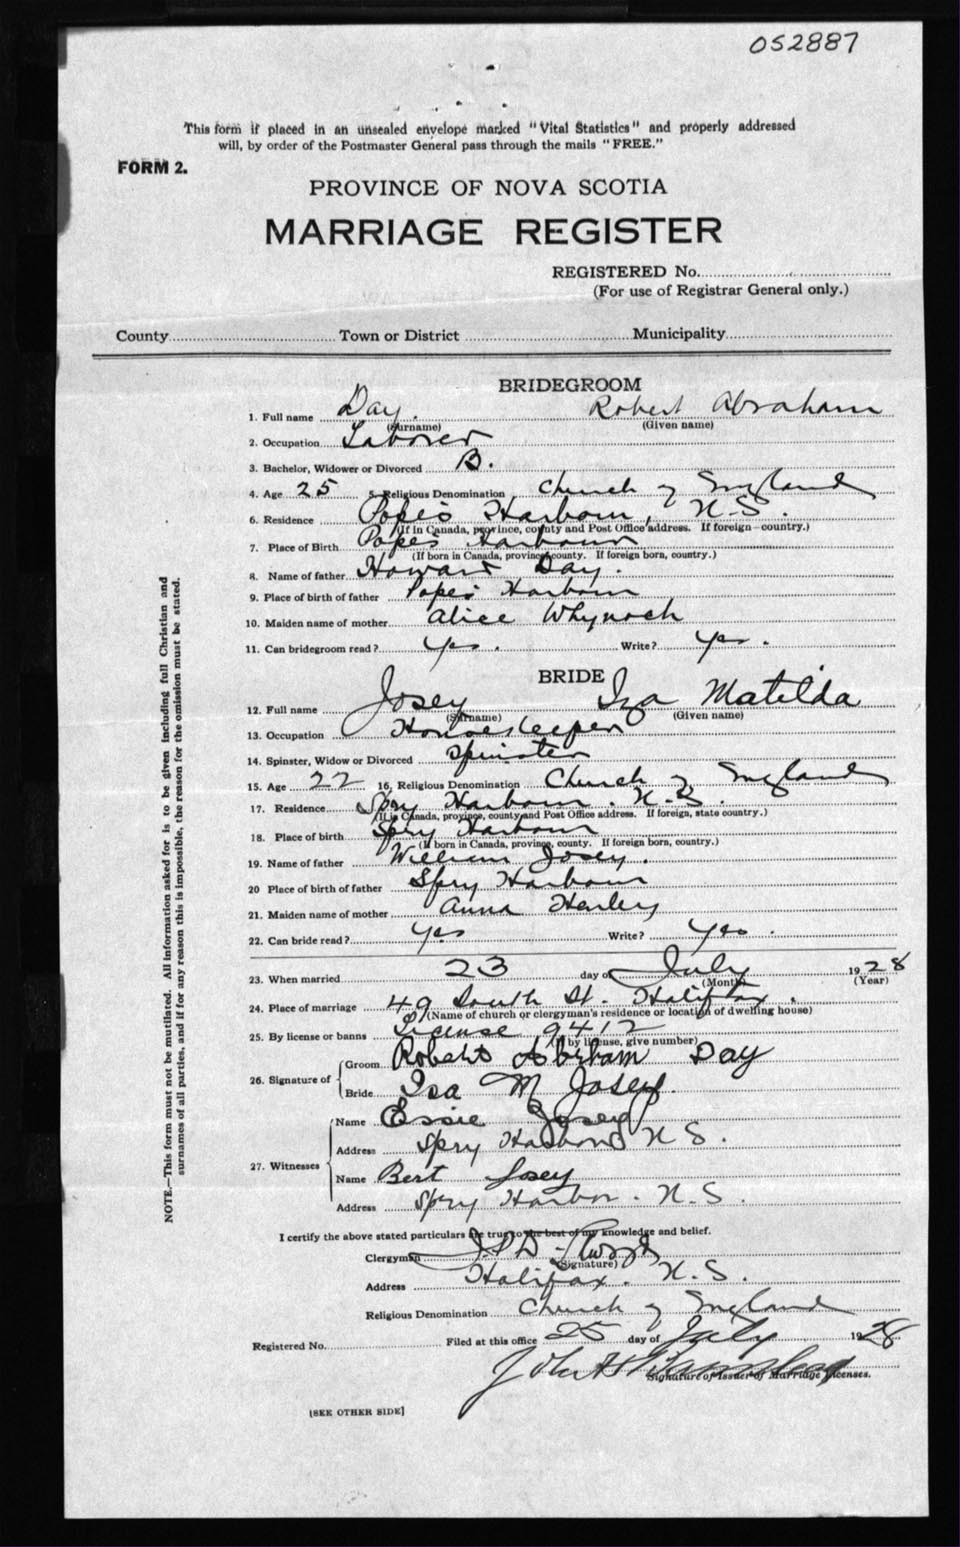 052887
This form if placed in an unsealed envelope marked "Vital Statistics" and properly addressed
will, by order of the Postmaster General pass through the mails "FREE."
FORM 2.
PROVINCE OF NOVA SCOTIA
MARRIAGE REGISTER
REGISTERED No.
(For use of Registrar General only.)
County Town or District Municipality
BRIDEGROOM
1. Full name Day. Robert Abraham
(Surname) (Given name)
2. Occupation Laborer
3. Bachelor, Widower or Divorced B.
4. Age 25 5. Religious Denomination Church of England
6. Residence Pope's Harbour, N.S.
(If in Canada, province, county and Post Office address. If foreign—country.)
7. Place of Birth Popes Harbour
(If born in Canada, province, county. If foreign born, country.)
8. Name of father Howard Day.
9. Place of birth of father Popes Harbour
10. Maiden name of mother Alice Whynoch
11. Can bridegroom read? Yes. Write? Yes.
BRIDE
12. Full name Josey Iza Matilda
(Surname) (Given name)
13. Occupation Housekeeper
14. Spinster, Widow or Divorced Spinster
15. Age 22 16. Religious Denomination Church of England
17. Residence Spry Harbour. N.S.
(If in Canada, province, county and Post Office address. If foreign, state country.)
18. Place of birth Spry Harbour
(If born in Canada, province, county. If foreign born, country.)
19. Name of father William Josey.
20 Place of birth of father Spry Harbour
21. Maiden name of mother Anna Henley
22. Can bride read? Yes Write? Yes.
23. When married 23 day of July 1928
(Month) (Year)
24. Place of marriage 49 South St. Halifax.
(Name of church or clergyman's residence or location of dwelling house)
25. By license or banns License 9412
(If by license, give number)
26. Signature of Groom Roberts Abrham Day
Bride Isa M Josey.
27. Witnesses Name Essie Josey
Address Spry Harbour N S.
Name Bert Josey
Address Spry Harbor. N.S.
I certify the above stated particulars are true to the best of my knowledge and belief.
Clergyman
(Signature)
Address Halifax. N.S.
Religious Denomination Church of England
Registered No. Filed at this office 25 day of July 1928
John H
Signature of Issuer of Marriage Licenses.
[SEE OTHER SIDE]
NOTE.—This form must not be mutilated. All information asked for is to be given including full Christian and
surnames of all parties, and if for any reason this is impossible, the reason for the omission must be stated.